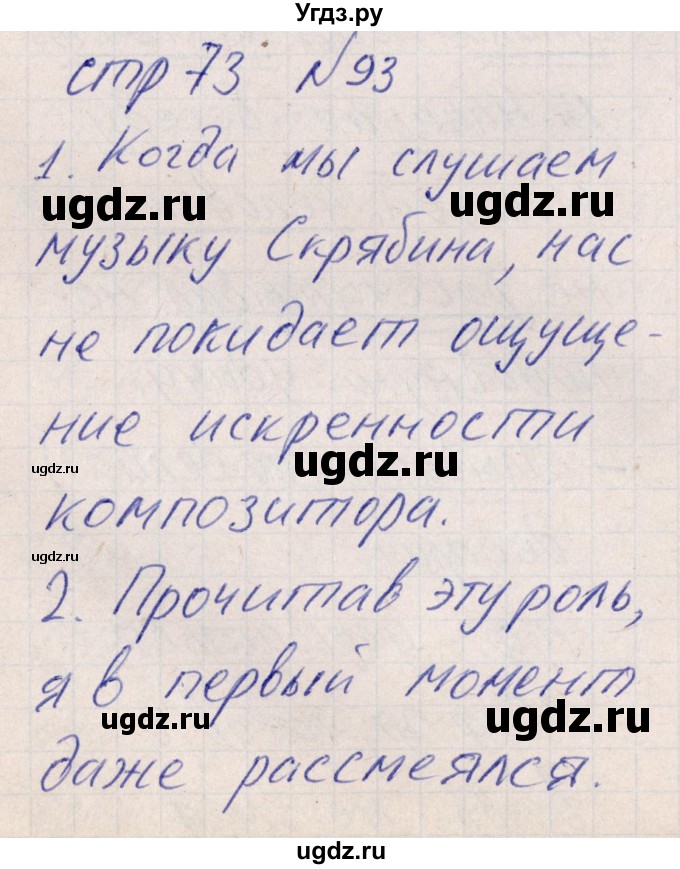 Угдз.ру
стр 73 №93
1. Когда мы слушаем
ugdz.ru ugdz.ru
музыку Скрябина, нас
не покидает ощуще-
ние искренности
ugdz.ru ugdz.ru
композитора.
ugdz.ru
2. Прочитав эту роль,
я в первый момент
ugdz.ru ugdz.ru
даже рассмеялся.
ugdz.ru